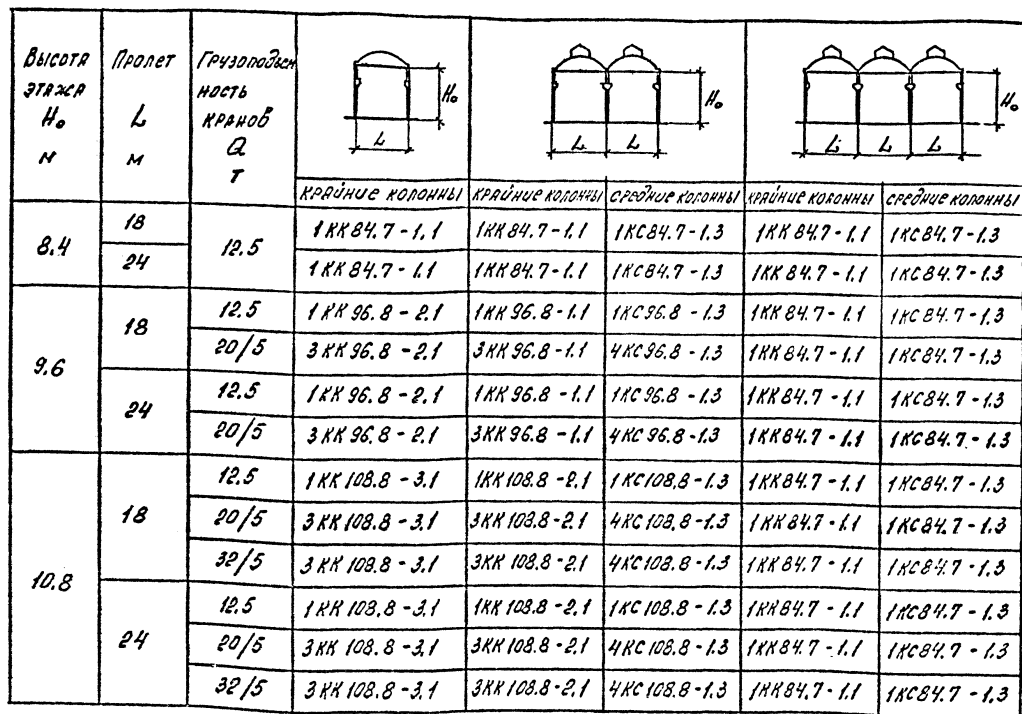 Высота этажа Н₀ м | Пролет L м | Грузоподъем ность кранов Q Т | L H₀ | L L H₀ | L L L H₀
крайние колонны | крайние колонны | средние колонны | крайние колонны | средние колонны
8.4 | 18 | 12.5 | 1КК84.7-1.1 | 1КК84.7-1.1 | 1КС84.7-1.3 | 1КК84.7-1.1 | 1КС84.7-1.3
24 | 1КК84.7-1.1 | 1КК84.7-1.1 | 1КС84.7-1.3 | 1КК84.7-1.1 | 1КС84.7-1.3
9.6 | 18 | 12.5 | 1КК96.8-2.1 | 1КК96.8-1.1 | 1КС96.8-1.3 | 1КК84.7-1.1 | 1КС84.7-1.3
20/5 | 3КК96.8-2.1 | 3КК96.8-1.1 | 4КС96.8-1.3 | 1КК84.7-1.1 | 1КС84.7-1.3
24 | 12.5 | 1КК96.8-2.1 | 1КК96.8-1.1 | 1КС96.8-1.3 | 1КК84.7-1.1 | 1КС84.7-1.3
20/5 | 3КК96.8-2.1 | 3КК96.8-1.1 | 4КС96.8-1.3 | 1КК84.7-1.1 | 1КС84.7-1.3
10.8 | 18 | 12.5 | 1КК108.8-3.1 | 1КК108.8-2.1 | 1КС108.8-1.3 | 1КК84.7-1.1 | 1КС84.7-1.3
20/5 | 3КК108.8-3.1 | 3КК108.8-2.1 | 4КС108.8-1.3 | 1КК84.7-1.1 | 1КС84.7-1.3
32/5 | 3КК108.8-3.1 | 3КК108.8-2.1 | 4КС108.8-1.3 | 1КК84.7-1.1 | 1КС84.7-1.3
24 | 12.5 | 1КК108.8-3.1 | 1КК108.8-2.1 | 1КС108.8-1.3 | 1КК84.7-1.1 | 1КС84.7-1.3
20/5 | 3КК108.8-3.1 | 3КК108.8-2.1 | 4КС108.8-1.3 | 1КК84.7-1.1 | 1КС84.7-1.3
32/5 | 3КК108.8-3.1 | 3КК108.8-2.1 | 4КС108.8-1.3 | 1КК84.7-1.1 | 1КС84.7-1.3